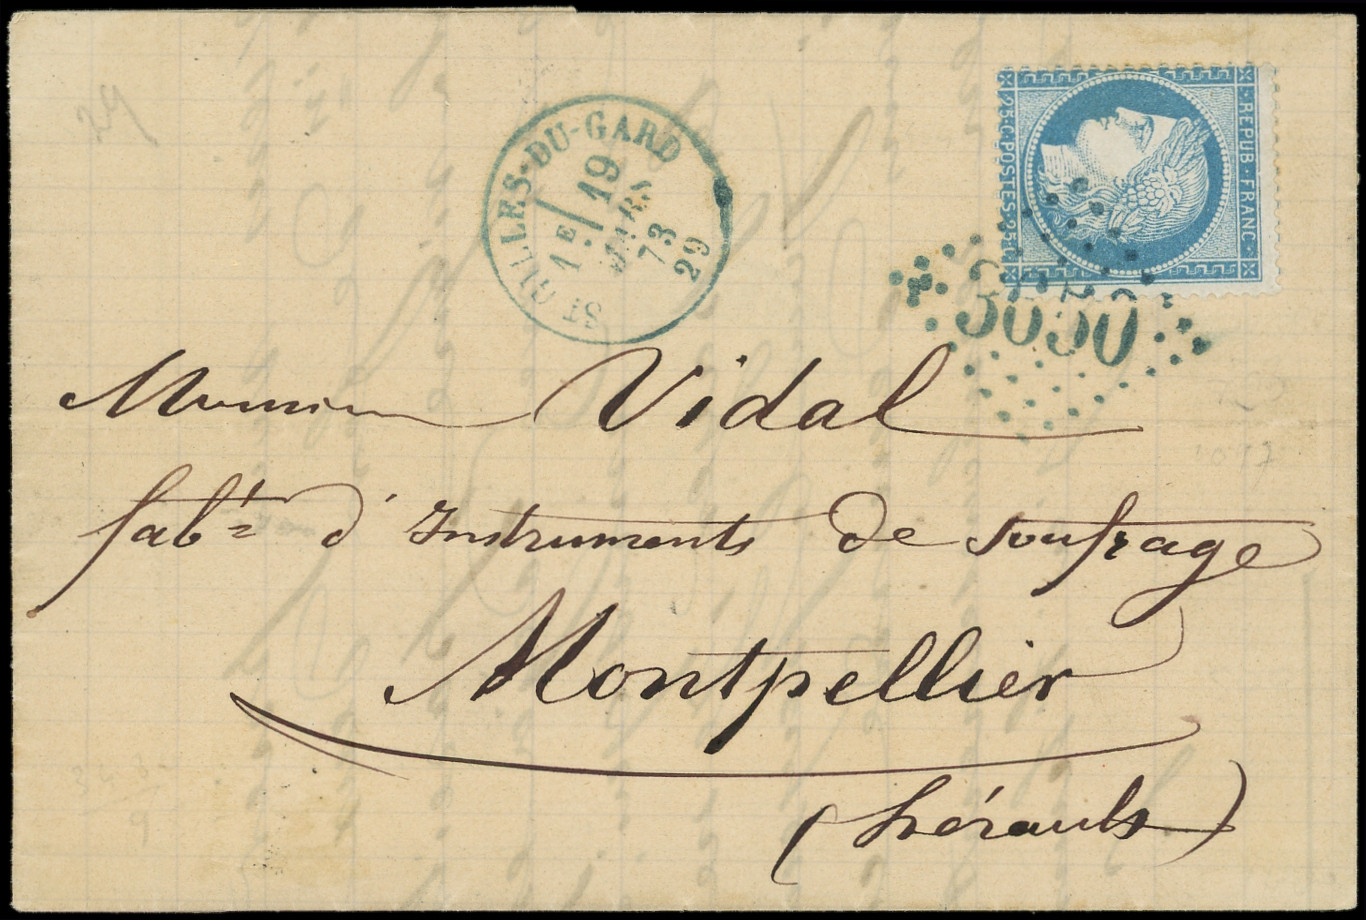 29
ST GILLES-DU-GARD
1E
19
MARS
73
29
REPUB·FRANC·
25·C·POSTES·25·C
3650
Monsieur Vidal
fabt d'Instruments de soufrage
Montpellier
(hérault)